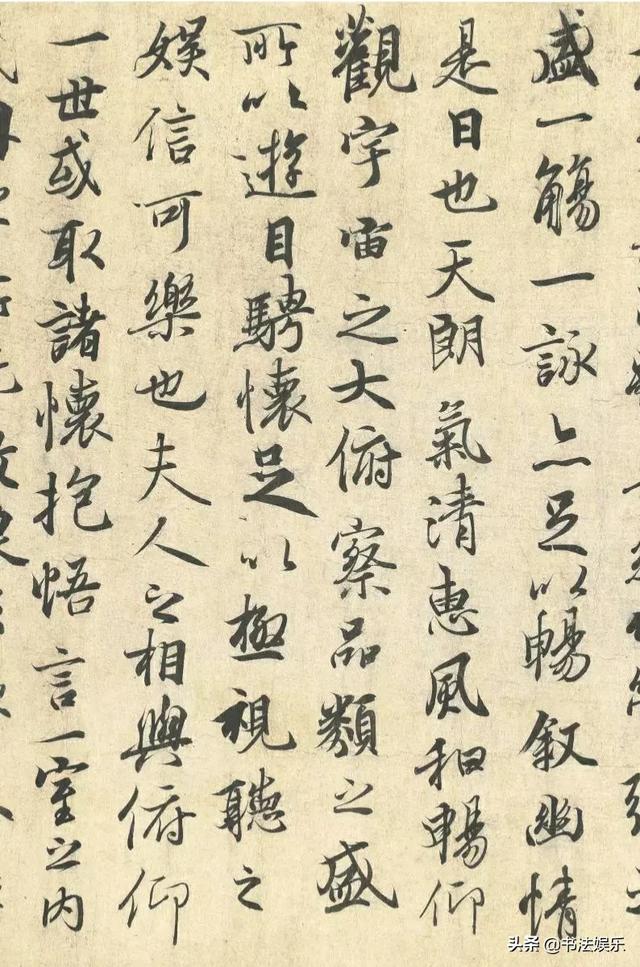 盛一觴一詠亦足以暢叙幽情
是日也天朗氣清惠風和暢仰
觀宇宙之大俯察品類之盛
所以遊目騁懷足以極視聽之
娛信可樂也夫人之相與俯仰
一世或取諸懷抱悟言一室之內
头条 @书法娱乐